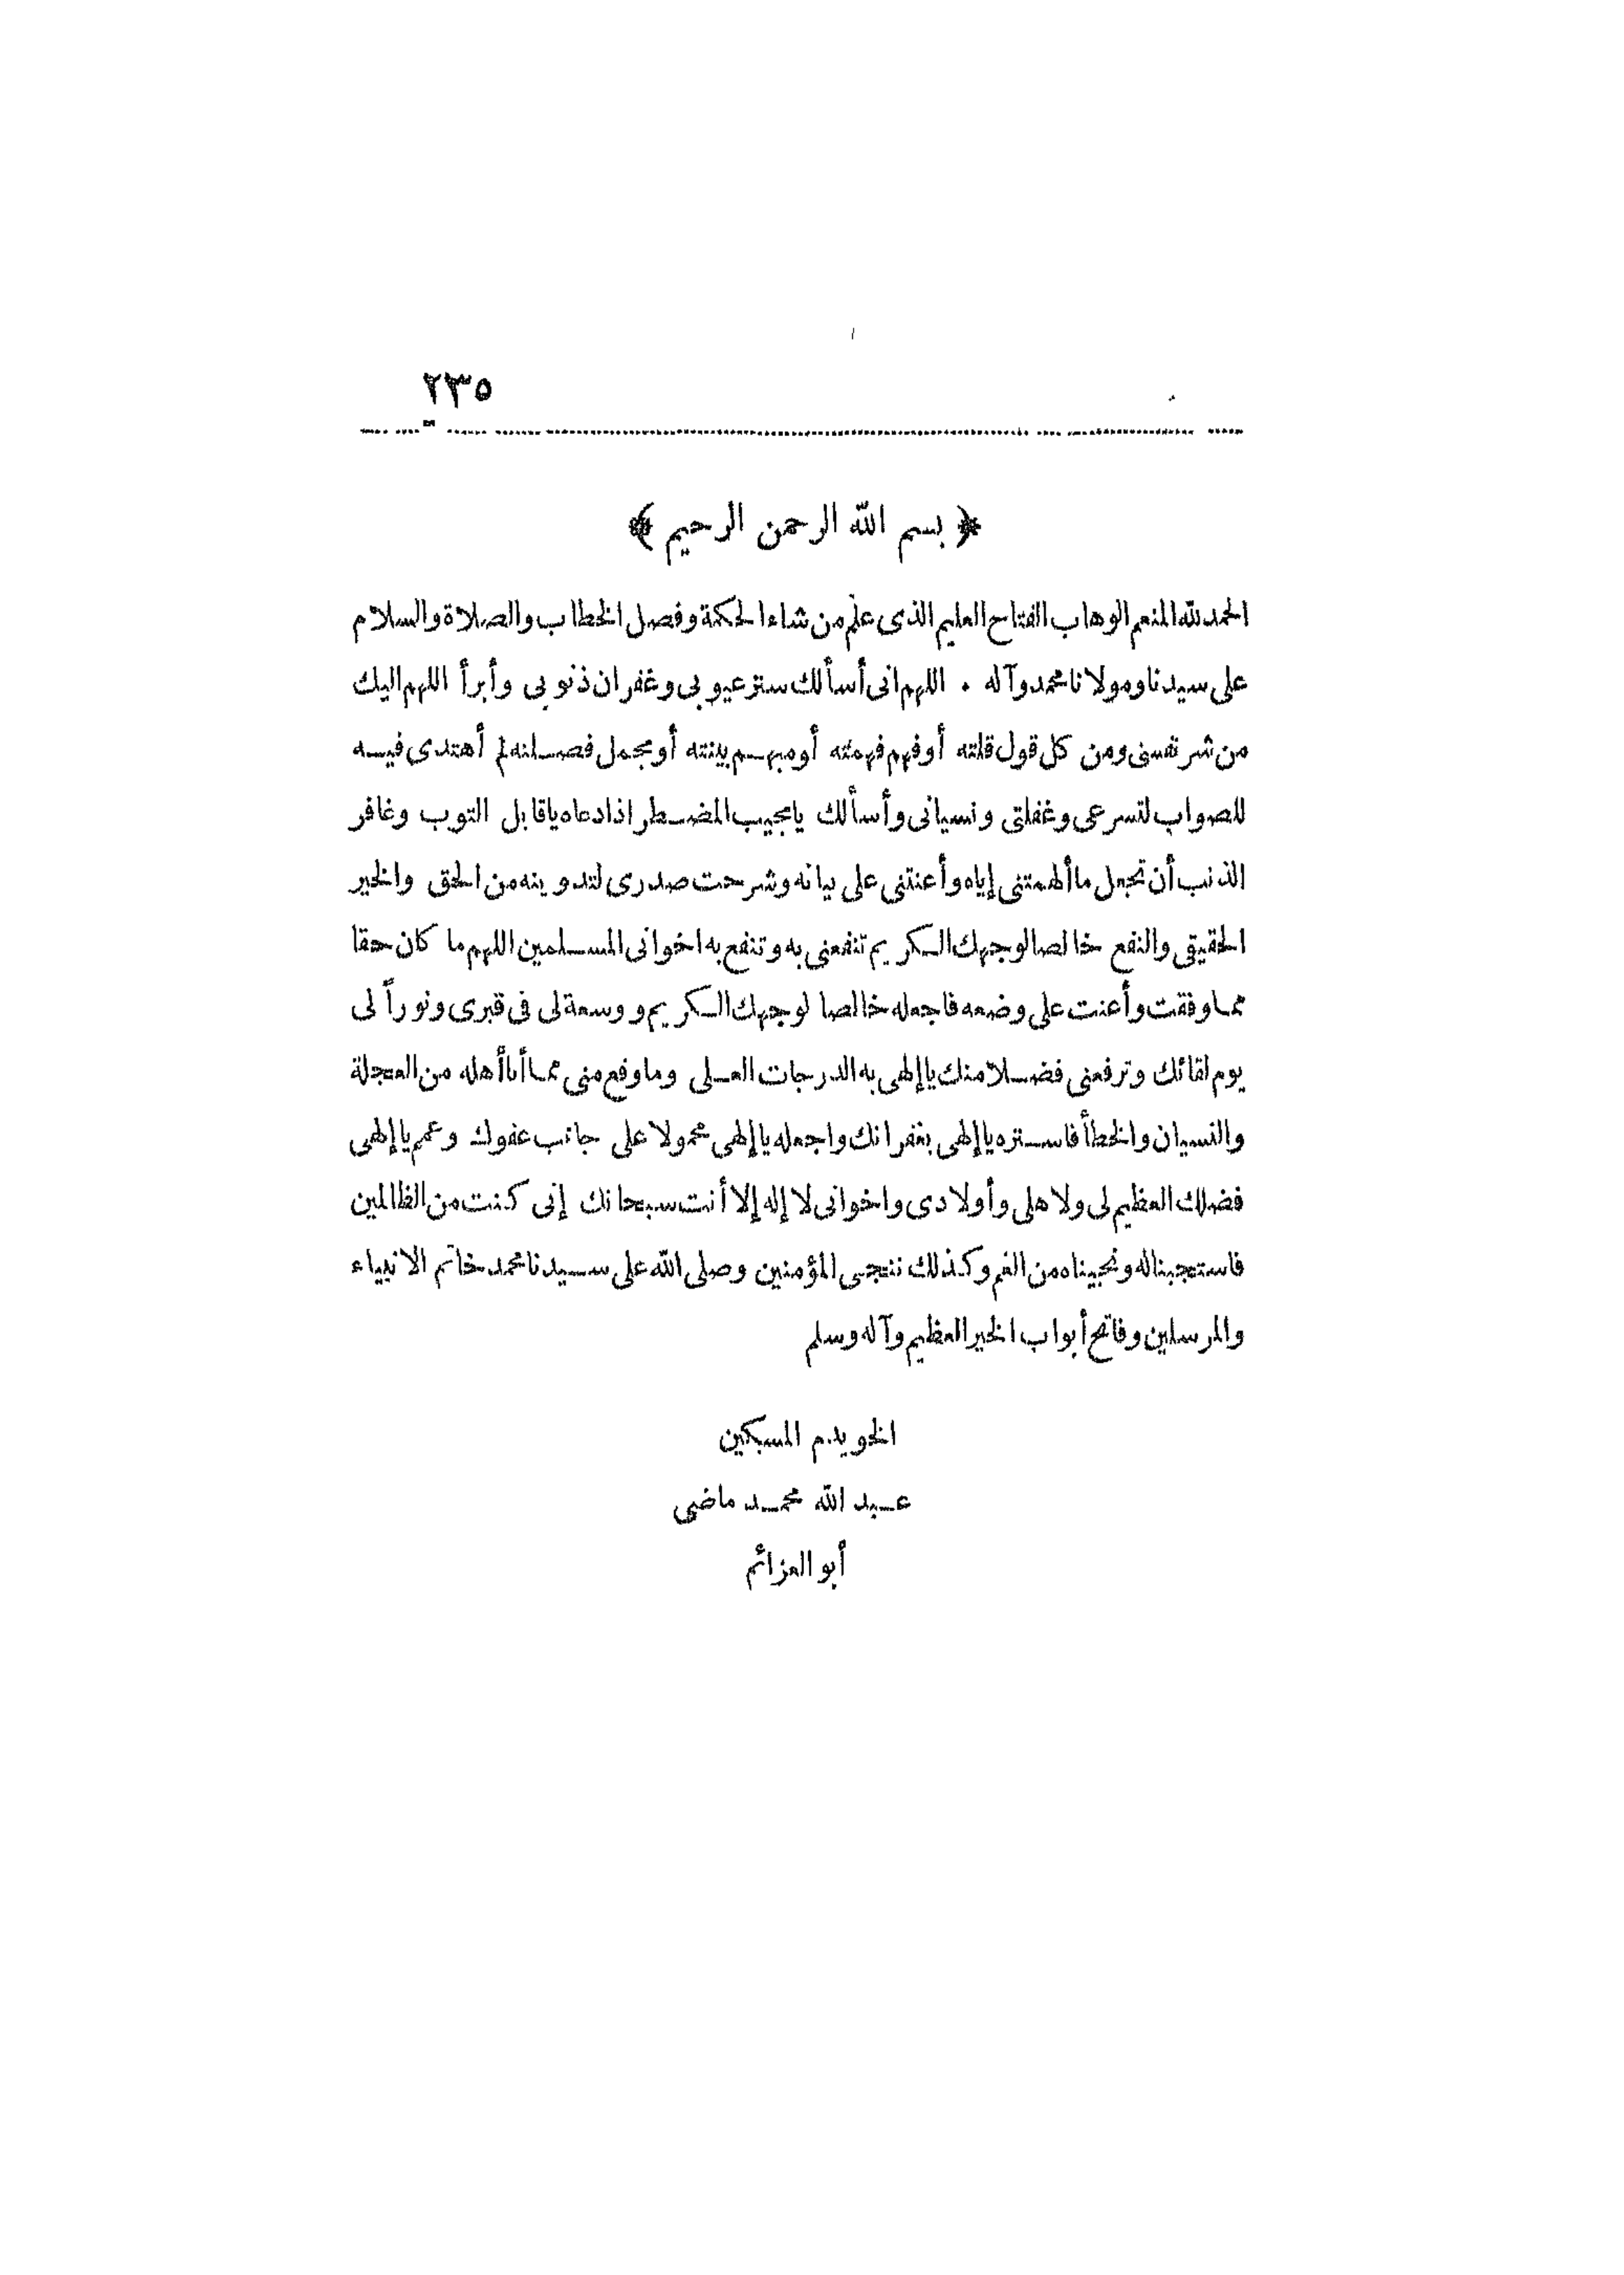 ٢٣٥
﴿ بسم الله الرحمن الرحيم ﴾
الحمد لله المنعم الوهاب الفتاح العليم الذى علم من شاء الحكمة وفصل الخطاب والصلاة والسلام
على سيدنا ومولانا محمد وآله . اللهم انى أسألك ستر عيوبى وغفران ذنوبى وأبرأ اللهم اليك
من شر نفسى ومن كل قول قلته أوفهم فهمته أومبهم بينته أومجمل فصلته لم أهتدى فيه
للصواب لتسرعى وغفلتى ونسيانى وأسألك يامجيب المضطر اذا دعاه ياقابل التوب وغافر
الذنب أن تجعل ما ألهمتنى إياه وأعنتنى على بيانه وشرحت صدرى لتدوينه من الحق والخير
الحقيقى والنفع خالصا لوجهك الكريم تنفعنى به وتنفع به اخوانى المسلمين اللهم ما كان حقا
مما وفقت وأعنت على وضعه فاجعله خالصا لوجهك الكريم ووسعة لى فى قبرى ونوراً لى
يوم لقائك وترفعنى فضلا منك يا إلهى به الدرجات العلى وما وقع منى مما أنا أهله من العجلة
والنسيان والخطأ فاستره يا إلهى بغفرانك واجعله يا إلهى محمولا على جانب عفوك وعمم يا إلهى
فضلك العظيم لى ولاهلى وأولادى واخوانى لا إله إلا أنت سبحانك إنى كنت من الظالمين
فاستجبنا له ونجيناه من الغم وكذلك ننجى المؤمنين وصلى الله على سيدنا محمد خاتم الانبياء
والمرسلين وفاتح أبواب الخير العظيم وآله وسلم
الخويدم المسكين
عبد الله محمد ماضى
أبو العزائم